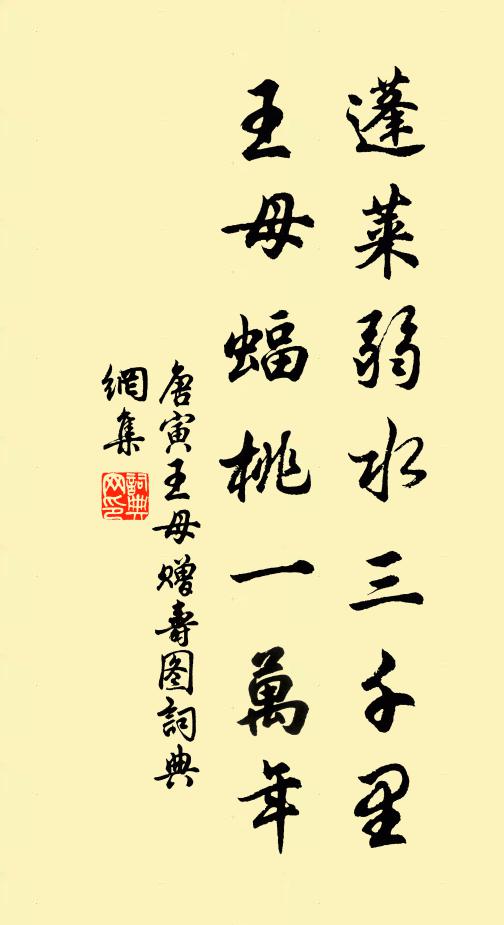 蓬萊弱水三千里
王母蝠桃一萬年
唐寅王母贈壽图詞典
網集
詞典
网印